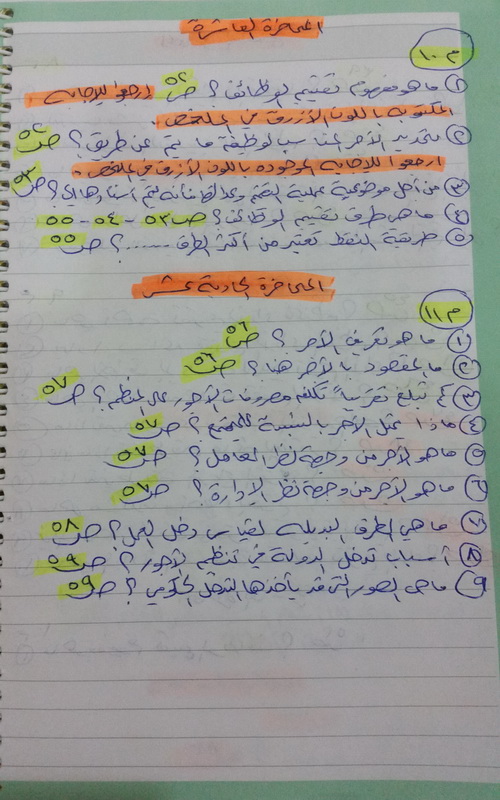 المحاضرة العاشرة
م١٠
١) ما هو مفهوم تقييم الوظائف؟ ص٥٢ ارجعوا للإجابه
المكتوبه باللون الأزرق في الملخص.
٢) تحديد الأجر المناسب لوظيفة ما يتم عن طريق؟ ص٥٢
ارجعوا للإجابه الموجوده باللون الأزرق في الملخص.
٣) من أجل موضوعية عملية التقييم وعدالتها فانه يتم أسنادها إلى؟ ص٥٣
٤) ما هي طرق تقييم الوظائف؟ ص٥٣ - ٥٤ - ٥٥
٥) طريقة النقط تعتبر من أكثر الطرق ......؟ ص٥٥
المحاضرة الحادية عشر
م١١
١) ما هو تعريف الأجر؟ ص٥٦
٢) ما المقصود بالأجر هنا؟ ص٥٦
٣) كم تبلغ تقريباً تكلفه مصروفات الأجور على المنظمه؟ ص٥٧
٤) ماذا يمثل الأجر بالنسبة للمجتمع؟ ص٥٧
٥) ما هو الأجر من وجهة نظر العامل؟ ص٥٧
٦) ما هو الأجر من وجهة نظر الإدارة؟ ص٥٧
٧) ما هي الطرق البديله لقياس دخل العمل؟ ص٥٨
٨) أسباب تدخل الدولة في تنظيم الأجور؟ ص٥٩
٩) ما هي الصور التي قد يأخذها التدخل الحكومي؟ ص٥٩